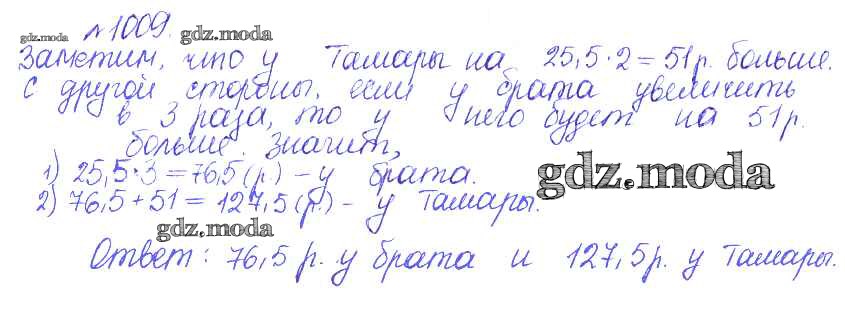 gdz.moda №1009. gdz.moda
Заметим, что у Тамары на 25,5·2=51р. больше.
С другой стороны, если у брата увеличить
в 3 раза, то у него будет на 51р.
больше. Значит,
1) 25,5·3=76,5(р.) – у брата.
gdz.moda
2) 76,5+51=127,5(р.) – у Тамары.
gdz.moda
Ответ: 76,5 р. у брата и 127,5р. у Тамары.